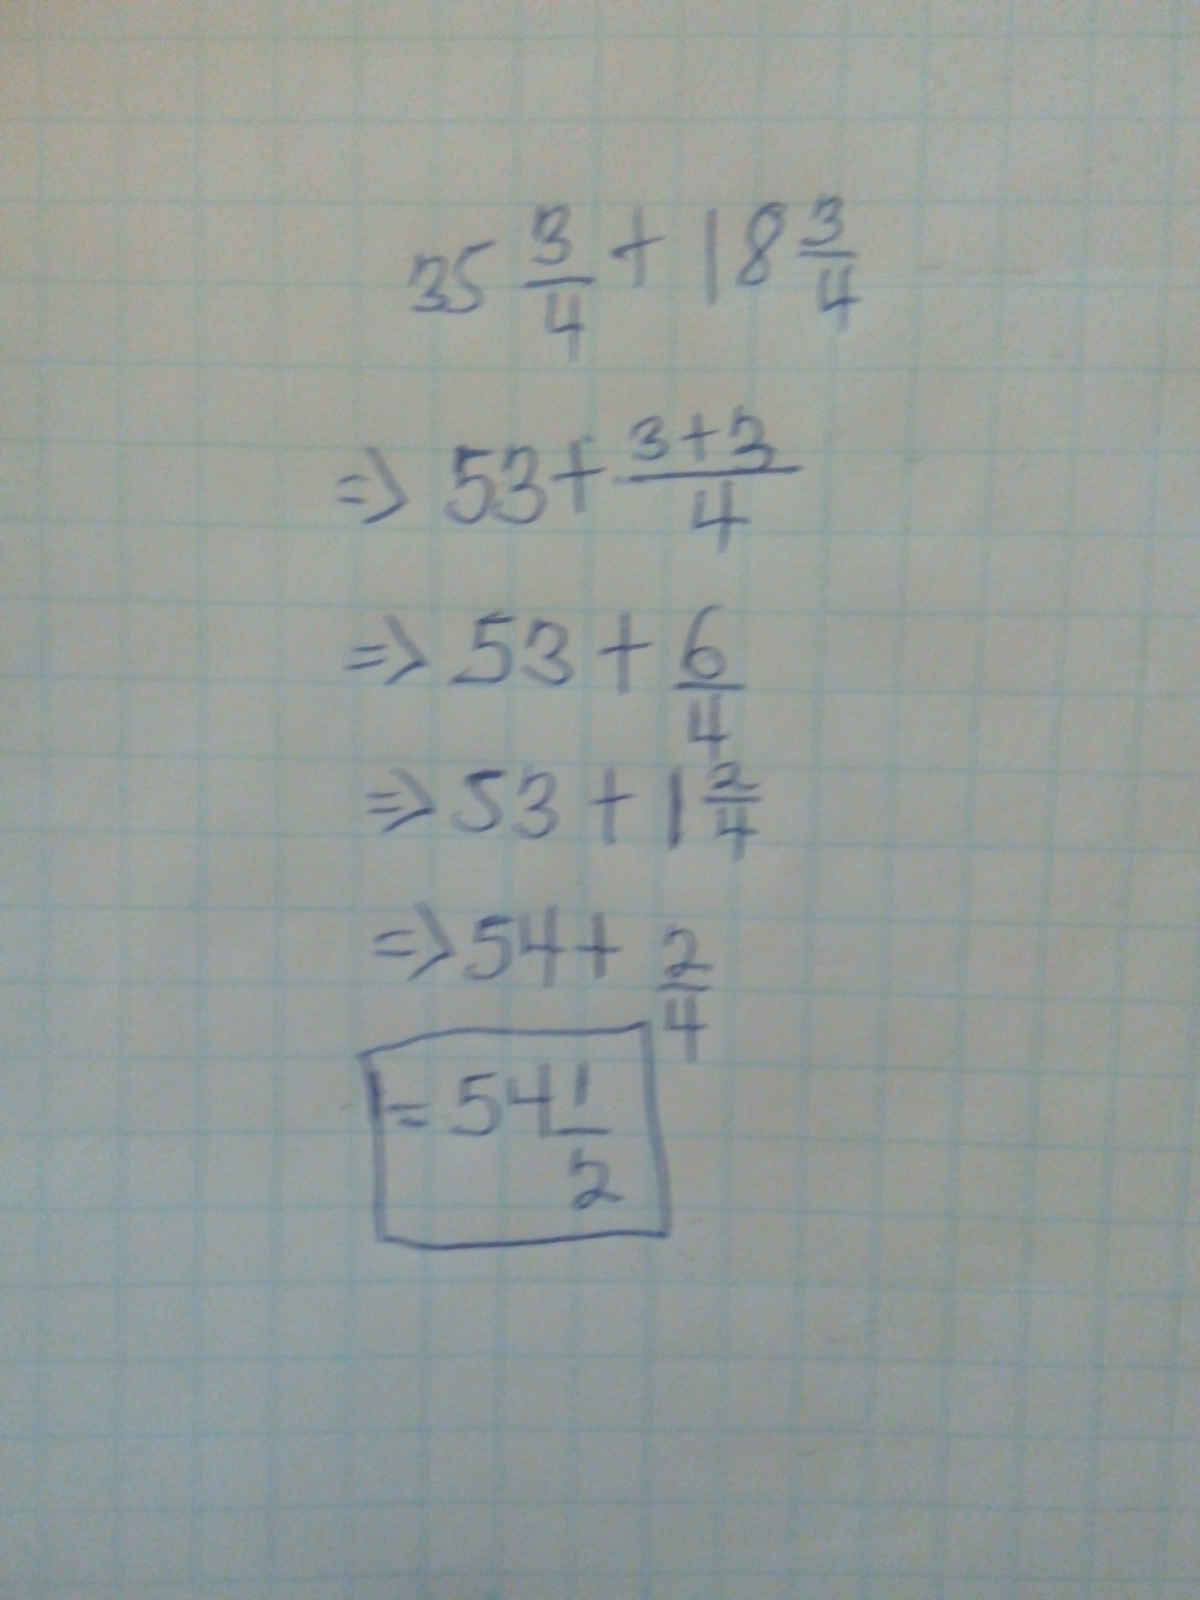 35 3/4 + 18 3/4
=> 53 + (3+3)/4
=> 53 + 6/4
=> 53 + 1 2/4
=> 54 + 2/4
= 54 1/2